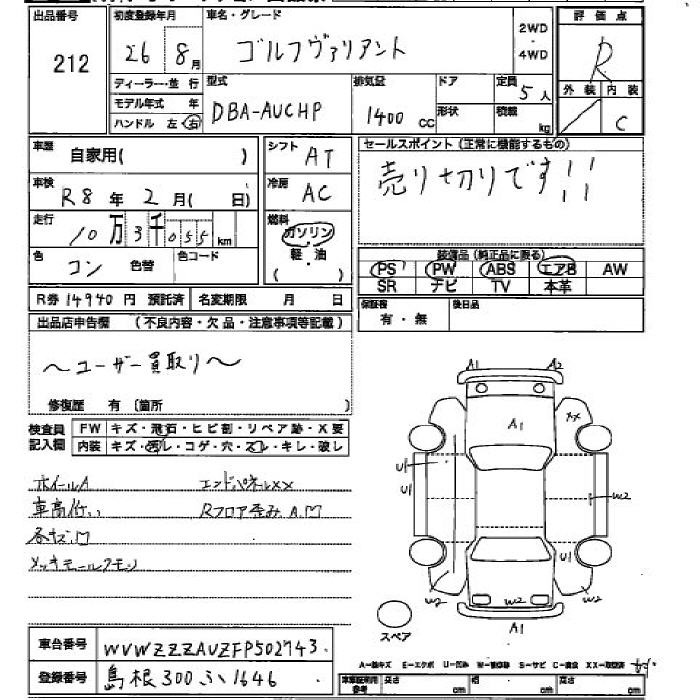 出品番号 初度登録年月 車名・グレード 評価点
212 26 8月 ゴルフヴァリアント 2WD・4WD R
ディーラー・並行 型式 排気量 ドア 定員 外装 内装
モデル年式 年 DBA-AUCHP 1400 CC 形状 積載 5人 C
ハンドル 左・右 kg
車歴 自家用( ) シフト AT セールスポイント(正常に機能するもの)
車検 R8年2月( 日) 冷房 AC 売り切りです!!
走行 10万3千055km 燃料 ガソリン
軽・油
( )
色 コン 色替 色コード 装備品(純正品に限る)
PS PW ABS エアB AW
SR ナビ TV 本革
R券 14940円 預託済 名変期限 月 日 保証書 有・無 後日品
出品店申告欄 (不良内容・欠品・注意事項等記載)
〜ユーザー買取り〜
修復歴 有 (箇所 )
検査員記入欄 FW キズ・飛石・ヒビ割・リペア跡・X要
内装 キズ・汚レ・コゲ・穴・スレ・キレ・破レ
ホイールA エンドパネルXX
車高 Rフロア歪み A凹
各キズ凹
メッキモールクモリ
A1 A2
A1 XX
U1
U1 W2
U1
W2 W2 W2
A1
スペア
A-線キズ E-エクボ U-凹み W-補修跡 S-サビ C-腐食 XX-交換済
車台番号 WVWZZZAUZFP502743
登録番号 島根300 1646
車庫証明用参考 長さ cm 幅 cm 高さ cm